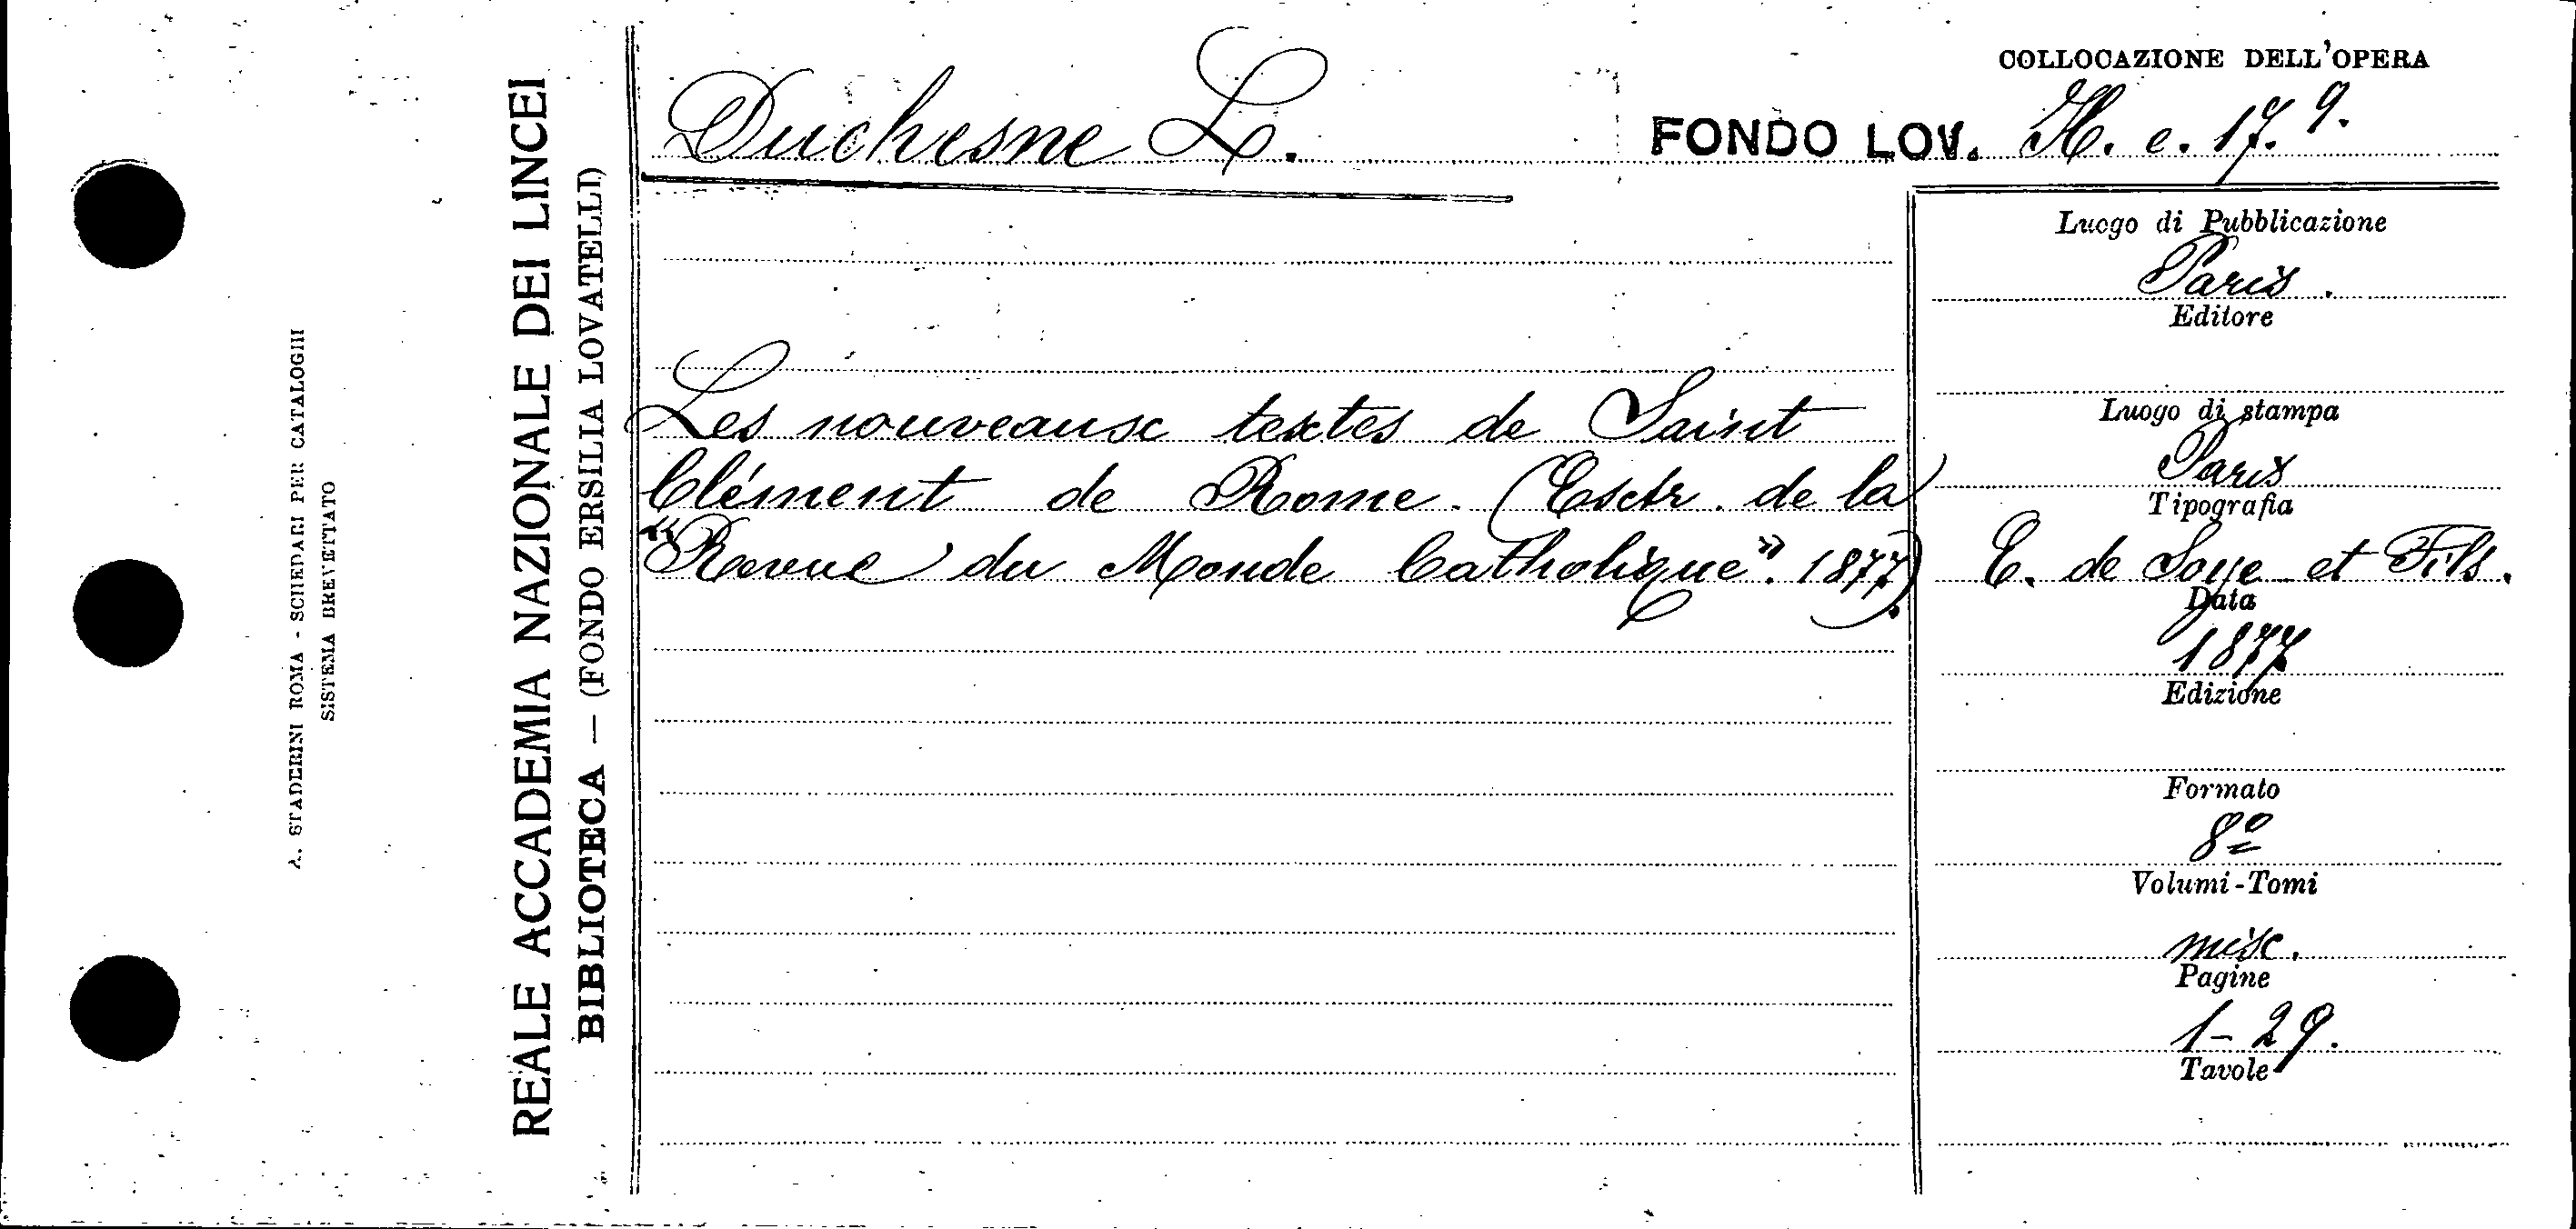 A. STADERINI ROMA - SCHEDARI PER CATALOGHI
SISTEMA BREVETTATO
REALE ACCADEMIA NAZIONALE DEI LINCEI
BIBLIOTECA — (FONDO ERSILIA LOVATELLI)
Duchesne L.
COLLOCAZIONE DELL'OPERA
FONDO LOV. H. e. 17. 9.
Les nouveaux textes de Saint
Clément de Rome. (Extr. de la
"Revue du Monde Catholique". 1877).
Luogo di Pubblicazione
Paris.
Editore
Luogo di stampa
Paris
Tipografia
E. de Soye et Fils.
Data
1877
Edizione
Formato
8º
Volumi-Tomi
misc.
Pagine
1-29.
Tavole